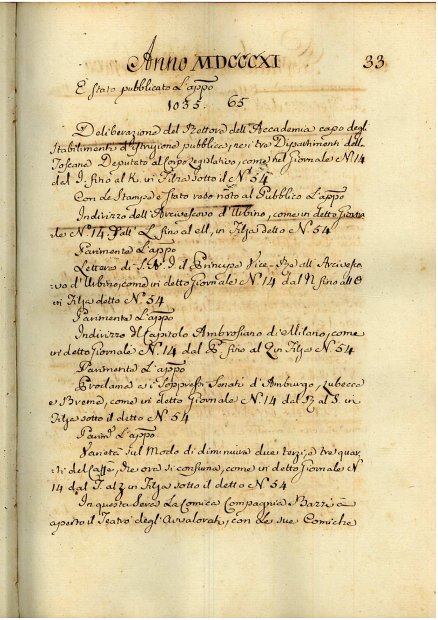 Anno MDCCCXI 33
È stato pubblicato L'appo
1035. 65
Deliberazione del Rettore dell'Accademia capo degli
Stabilimenti d'Istruzione pubblica, nei tre Dipartimenti della
Toscana Deputato al Corpo Legislativo, come nel Giornale N.º 14
dal I. fino al K. in Filza sotto il N.º 54
Con Le Stampe è stato reso noto al Pubblico L'appo
Indirizzo dell'Arcivescovo d'Urbino, come in detto Giorna
le N.º 14 dall' L. fino al M, in Filza detto N. 54
Parimente L'appo
Lettera di S. A. I. il Principe Vice-Re all'Arcivesco
vo d'Urbino, come in detto Giornale N.º 14 dal N fino al O
in Filza detto N.º 54
Parimente L'appo
Indirizzo del Capitolo Ambrosiano di Milano, come
in detto Giornale N.º 14 dal P. fino al Q in Filza N.º 54
Parimente L'appo
Proclama a i Soppressi Senati d'Amburgo, Lubecca
e Brema, come in detto Giornale N.º 14 dal R. al S. in
Filza sotto il detto N.º 54
Parim.e L'appo
Varietà sul Modo di diminuire due terzi, o tre quar
ti del Caffè, che ora si consuma, come in detto Giornale N.
14 dal T. al Z in Filza sotto il detto N.º 54
In questa Sera La Comica Compagnia Bazzi à
aperto il Teatro degl'Avvalorati, con Le sue Comiche